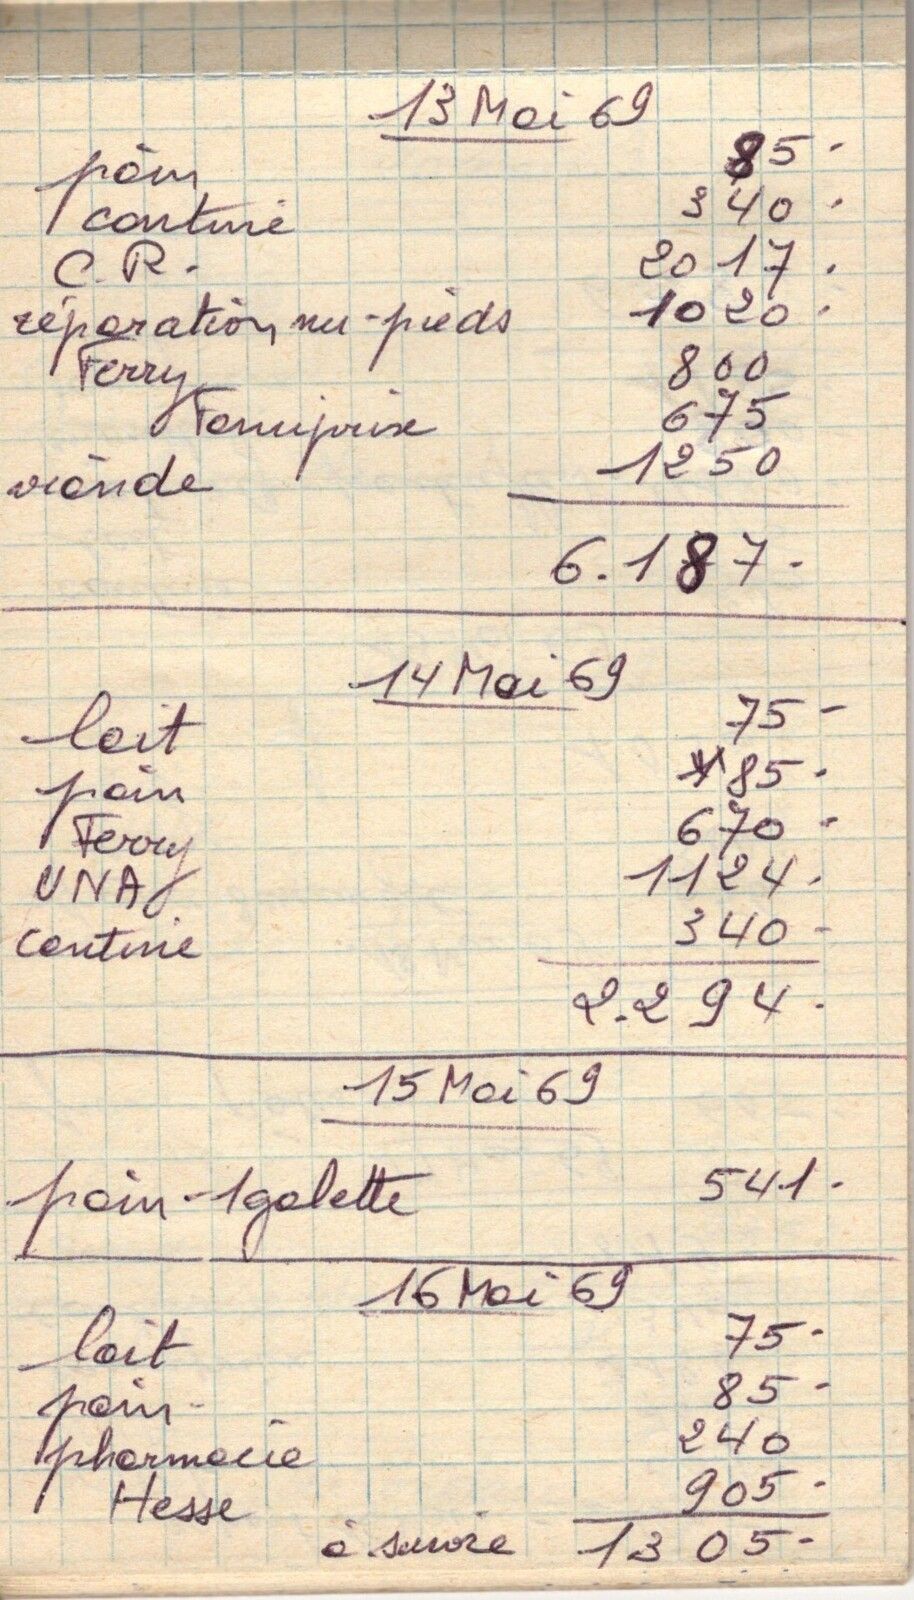 13 Mai 69
pain 85.
cantine 340.
C.R. 2017.
réparation nu-pieds 1020.
Ferry 800
Famiprix 675
viande 1250
6.187.
14 Mai 69
lait 75-
pain 85.
Ferry 670-
UNA 1124.
cantine 340-
2.294.
15 Mai 69
pain-1galette 541.
16 Mai 69
lait 75.
pain- 85-
pharmacie 240
Hesse 905.
à suivre 1305-